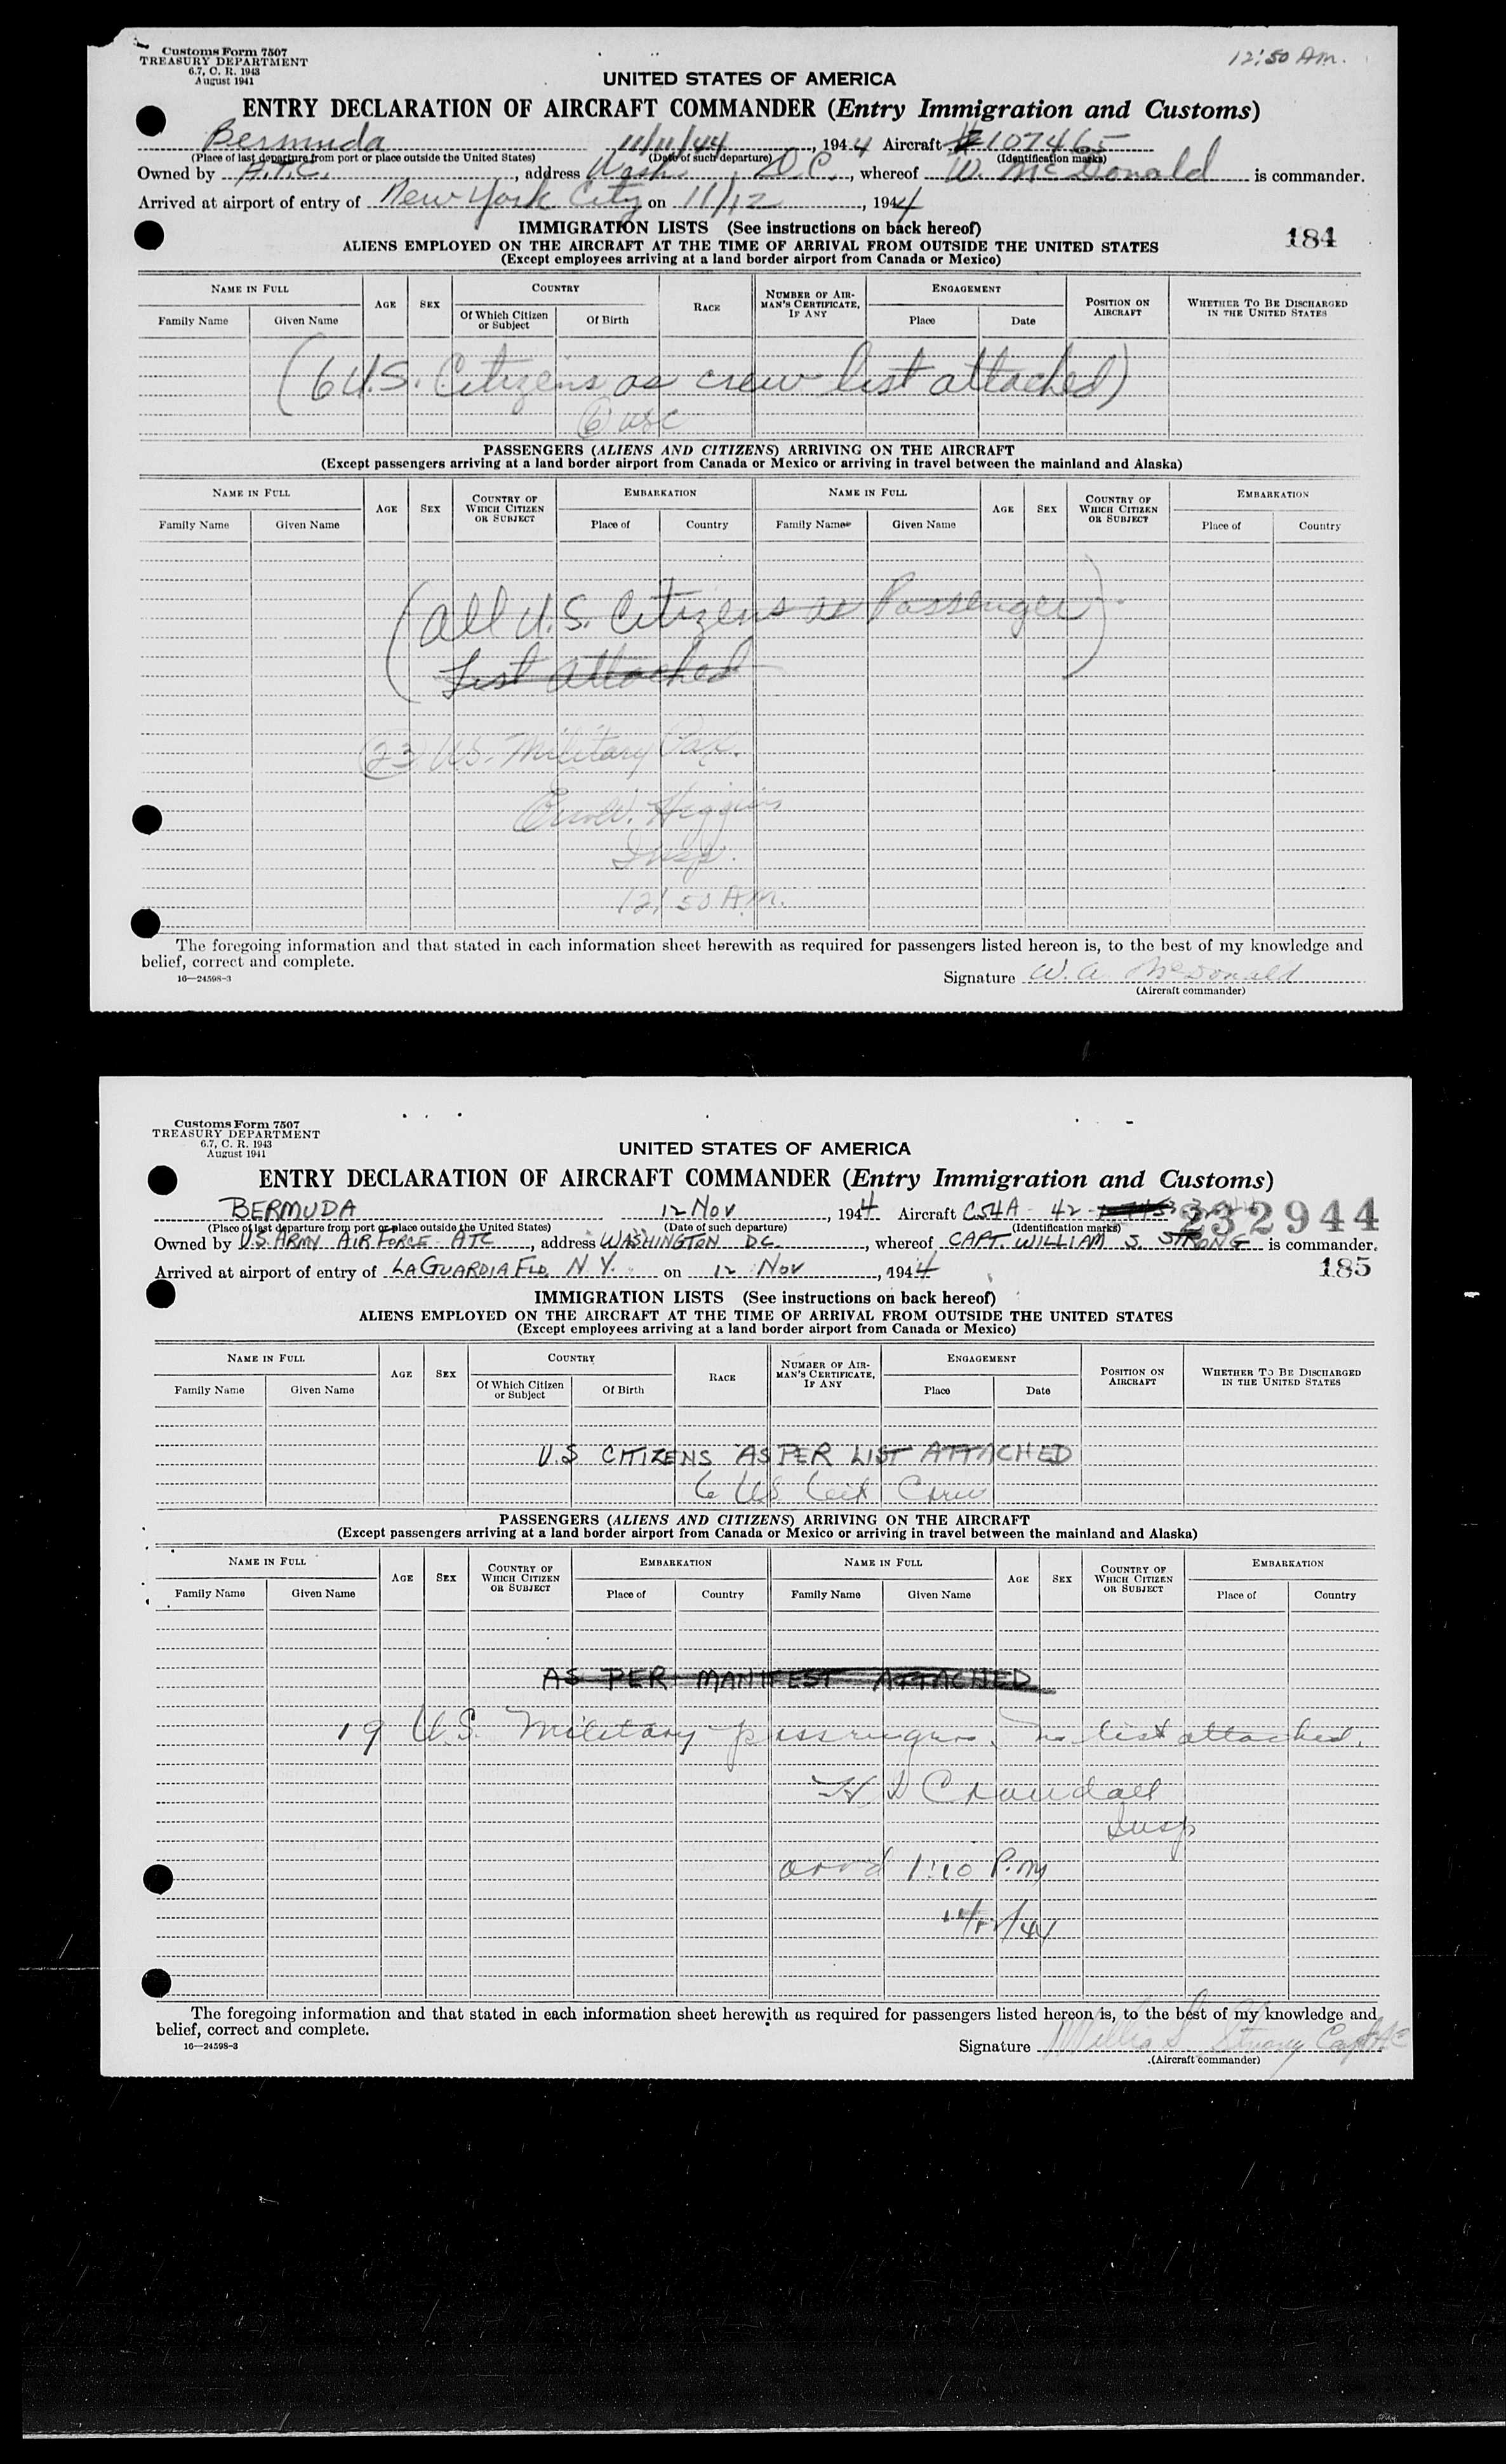 Customs Form 7507
TREASURY DEPARTMENT
6.7, C. R. 1943
August 1941
12:50 A.M.
UNITED STATES OF AMERICA
ENTRY DECLARATION OF AIRCRAFT COMMANDER (Entry Immigration and Customs)
Bermuda 11/11/44, 1944 Aircraft #107465
(Place of last departure from port or place outside the United States) (Date of such departure) (Identification marks)
Owned by A.T.C., address Wash. D.C., whereof W. McDonald is commander.
Arrived at airport of entry of New York City on 11/12, 1944
IMMIGRATION LISTS (See instructions on back hereof)
184
ALIENS EMPLOYED ON THE AIRCRAFT AT THE TIME OF ARRIVAL FROM OUTSIDE THE UNITED STATES
(Except employees arriving at a land border airport from Canada or Mexico)
NAME IN FULL AGE SEX COUNTRY RACE NUMBER OF AIRMAN'S CERTIFICATE, IF ANY ENGAGEMENT POSITION ON AIRCRAFT WHETHER TO BE DISCHARGED IN THE UNITED STATES
Family Name Given Name Of Which Citizen or Subject Of Birth Place Date
(6 U.S. Citizens as crew list attached)
(6) USC
PASSENGERS (ALIENS AND CITIZENS) ARRIVING ON THE AIRCRAFT
(Except passengers arriving at a land border airport from Canada or Mexico or arriving in travel between the mainland and Alaska)
NAME IN FULL AGE SEX COUNTRY OF WHICH CITIZEN OR SUBJECT EMBARKATION NAME IN FULL AGE SEX COUNTRY OF WHICH CITIZEN OR SUBJECT EMBARKATION
Family Name Given Name Place of Country Family Name Given Name Place of Country
(All U.S. Citizens as Passenger)
List attached
(23) U.S. Military Pax.
Higgins
Insp.
12:50 A.M.
The foregoing information and that stated in each information sheet herewith as required for passengers listed hereon is, to the best of my knowledge and
belief, correct and complete.
16—24598-3
Signature W. A. McDonald
(Aircraft commander)
Customs Form 7507
TREASURY DEPARTMENT
6.7, C. R. 1943
August 1941
UNITED STATES OF AMERICA
ENTRY DECLARATION OF AIRCRAFT COMMANDER (Entry Immigration and Customs)
BERMUDA 12 Nov, 1944 Aircraft C54A - 42 - 232944
(Place of last departure from port or place outside the United States) (Date of such departure) (Identification marks)
Owned by U.S. ARMY AIR FORCE - ATC, address WASHINGTON DC., whereof CAPT. WILLIAM S. STRONG is commander.
Arrived at airport of entry of LAGUARDIA FLD. N.Y. on 12 Nov, 1944
185
IMMIGRATION LISTS (See instructions on back hereof)
ALIENS EMPLOYED ON THE AIRCRAFT AT THE TIME OF ARRIVAL FROM OUTSIDE THE UNITED STATES
(Except employees arriving at a land border airport from Canada or Mexico)
NAME IN FULL AGE SEX COUNTRY RACE NUMBER OF AIRMAN'S CERTIFICATE, IF ANY ENGAGEMENT POSITION ON AIRCRAFT WHETHER TO BE DISCHARGED IN THE UNITED STATES
Family Name Given Name Of Which Citizen or Subject Of Birth Place Date
U.S CITIZENS AS PER LIST ATTACHED
6 US Crew
PASSENGERS (ALIENS AND CITIZENS) ARRIVING ON THE AIRCRAFT
(Except passengers arriving at a land border airport from Canada or Mexico or arriving in travel between the mainland and Alaska)
NAME IN FULL AGE SEX COUNTRY OF WHICH CITIZEN OR SUBJECT EMBARKATION NAME IN FULL AGE SEX COUNTRY OF WHICH CITIZEN OR SUBJECT EMBARKATION
Family Name Given Name Place of Country Family Name Given Name Place of Country
AS PER MANIFEST ATTACHED
19 U.S. Military passengers. no list attached.
H D Crandall
Insp
arrvd 1:10 P.M.
The foregoing information and that stated in each information sheet herewith as required for passengers listed hereon is, to the best of my knowledge and
belief, correct and complete.
16—24598-3
Signature William S. Strong Capt AC
(Aircraft commander)